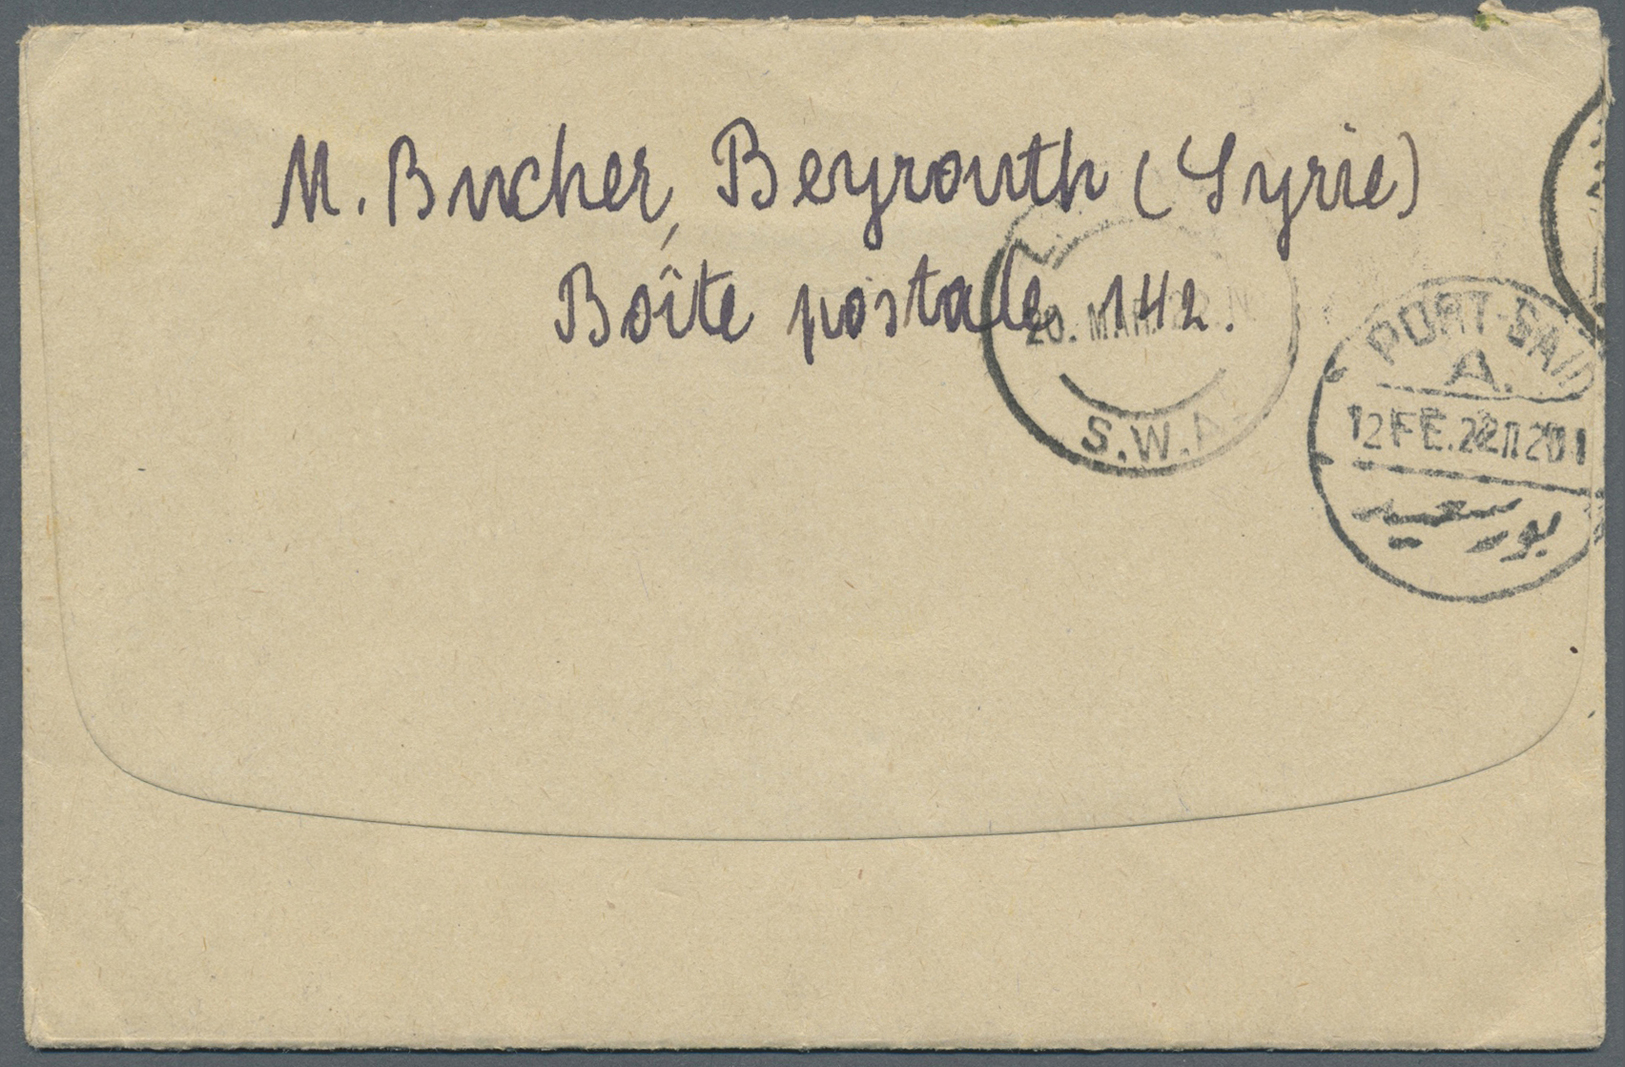 M. Bucher, Beyrouth (Syrie)
Boîte postale 142.
20. MAR. 22
S.W.A.
PORT-SAID
A.
12 FE.22
بور سعيد